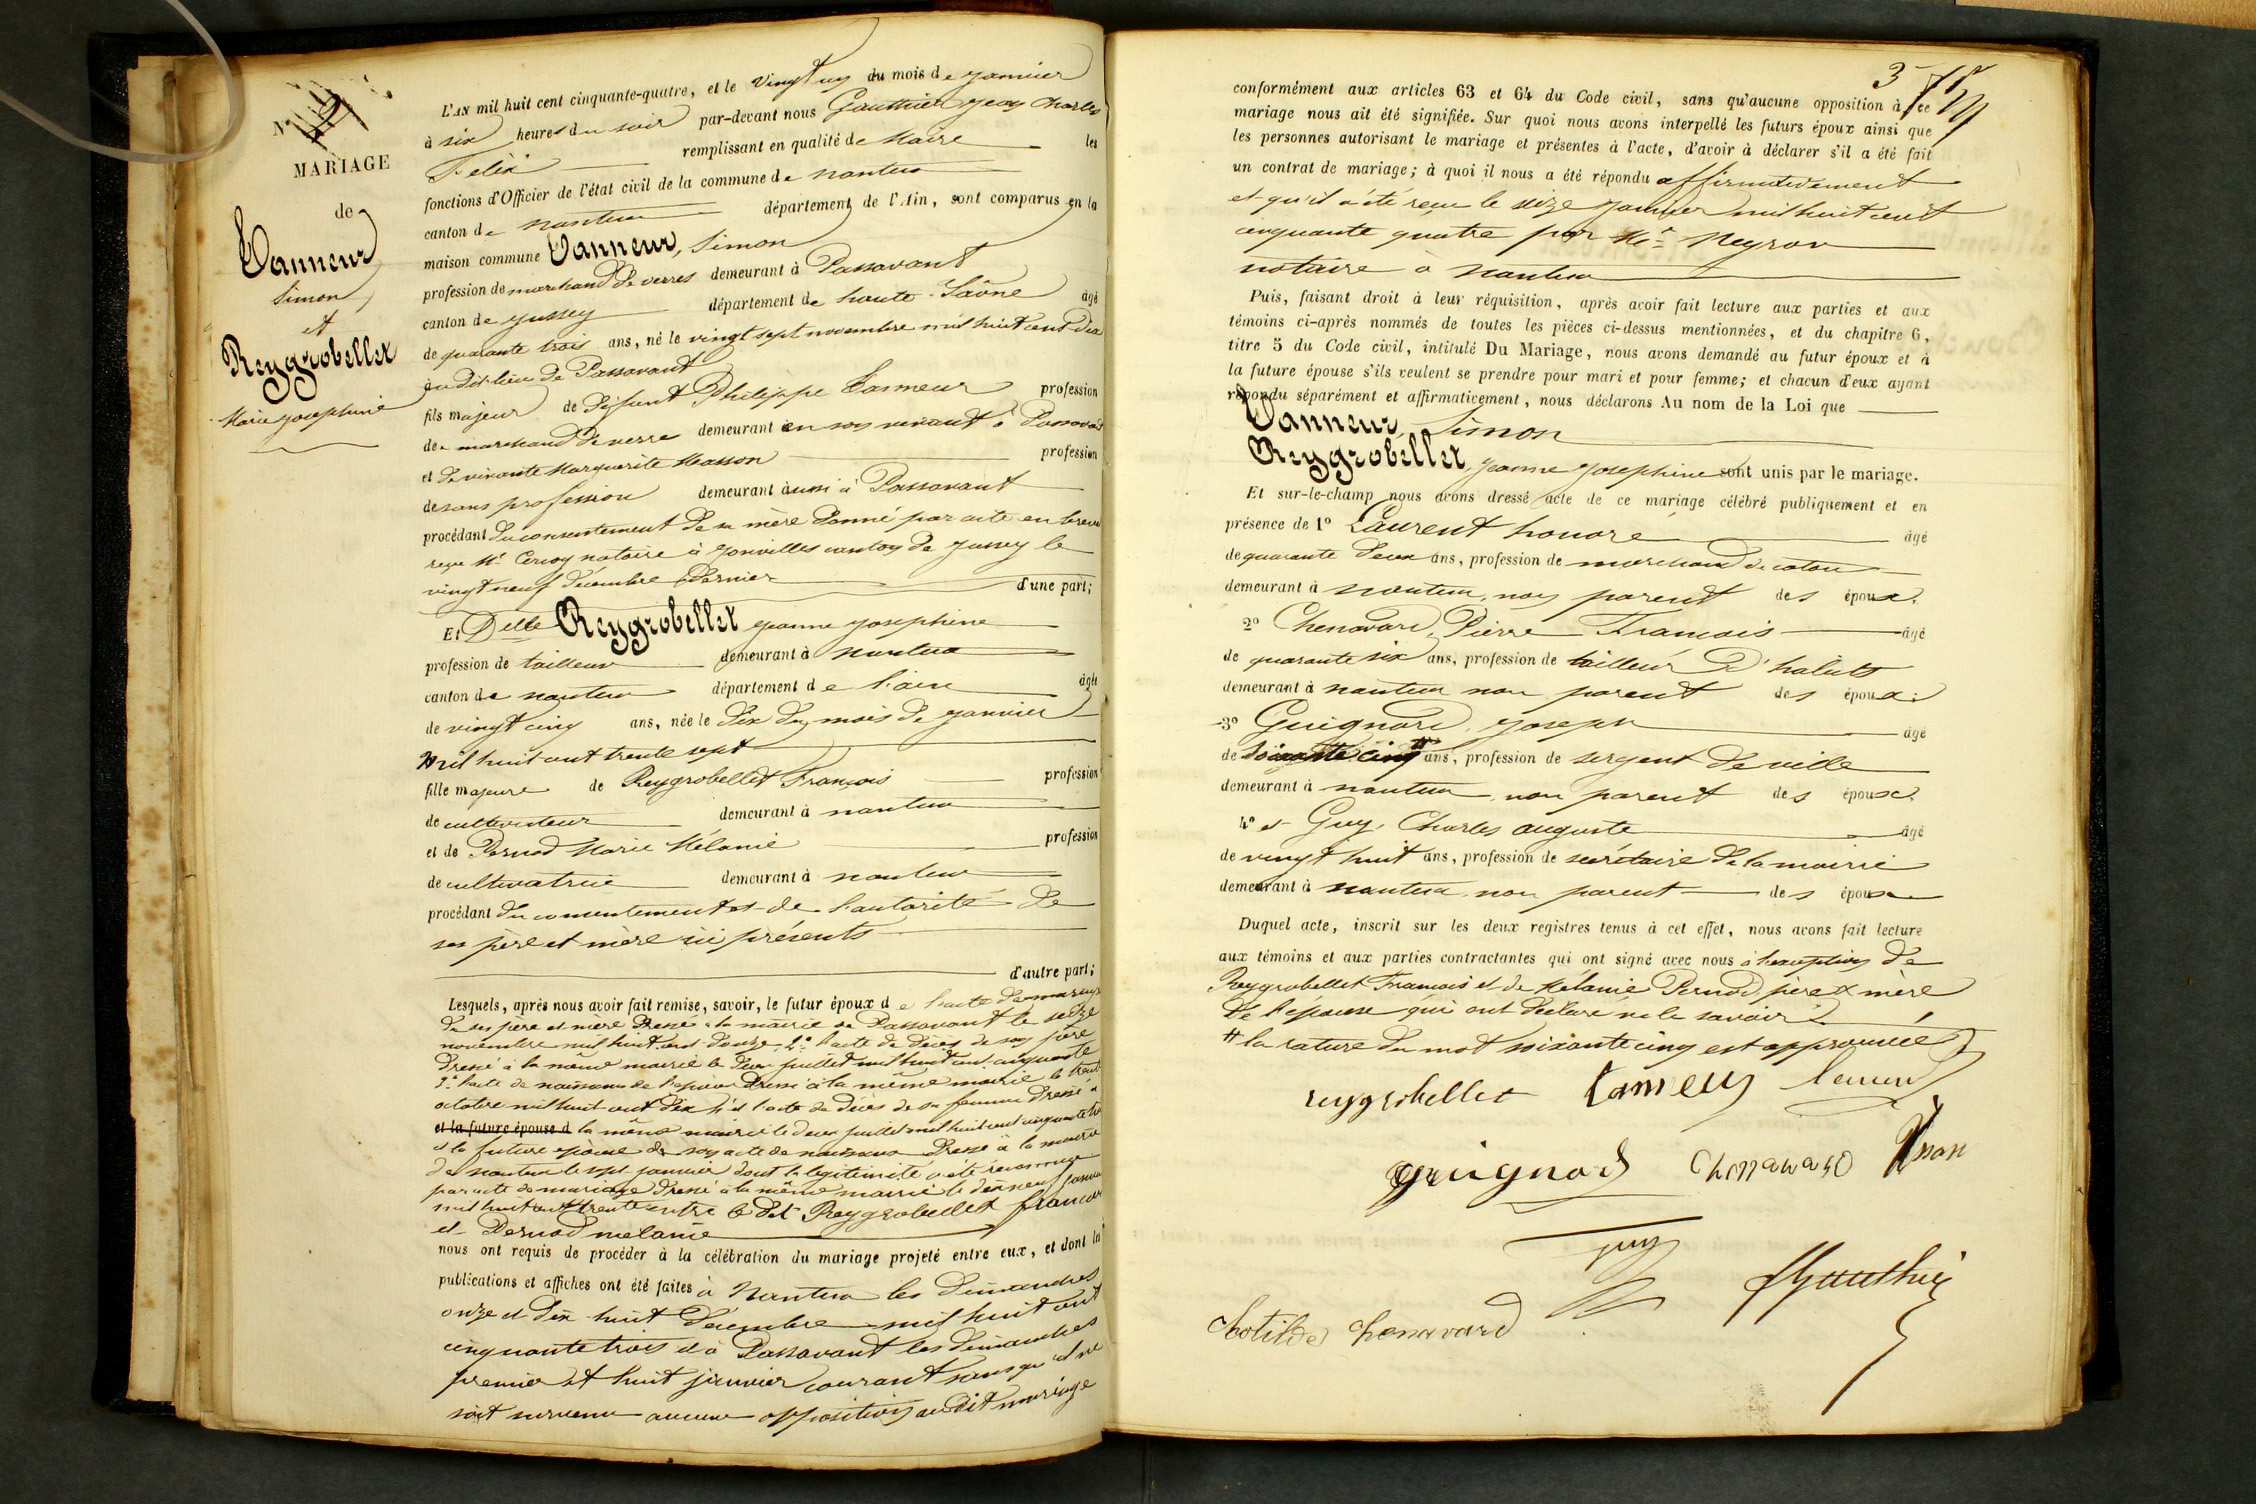 N°
MARIAGE
de
Vanneur
Simon
et
Reygrobellet
Marie Josephine
L'AN mil huit cent cinquante-quatre, et le Vingt un du mois de Janvier
à six heures du soir par-devant nous Gauthier Jean Charles
Felix remplissant en qualité de Maire les
fonctions d'Officier de l'état civil de la commune de nantua
canton de nantua département de l'Ain, sont comparus en la
maison commune Vanneur, Simon
profession de marchand de verres demeurant à Passavant
canton de Jussey département de haute-Saône âgé
de quarante trois ans, né le vingt sept novembre mil huit cent dix
au dit lieu de Passavant
fils majeur de défunt Philippe Vanneur profession
de marchand de verre demeurant en son vivant à Passavant
et de vivante Marguerite Masson profession
de sans profession demeurant aussi à Passavant
procédant du consentement de sa mère donné par acte en brevet
reçu Me notaire à Jonvilles canton de Jussey le
vingt neuf décembre dernier d'une part;
Et Delle Reygrobellet Jeanne Josephine
profession de tailleur demeurant à Nantua
canton de nantua département de l'ain âgée
de vingt cinq ans, née le dix du mois de Janvier
Mil huit cent trente sept
fille majeure de Reygrobellet François profession
de cultivateur demeurant à nantua
et de Pernod Marie Mélanie profession
de cultivatrice demeurant à nantua
procédant du consentement et de l'autorité de
ses père et mère ici présents
d'autre part;
Lesquels, après nous avoir fait remise, savoir, le futur époux de l'acte de mariage
de ses père et mère dressé à la mairie de Passavant le seize
novembre mil huit cent douze 2° l'acte de décès de son père
dressé à la même mairie le deux juillet mil huit cent cinquante
3° l'acte de naissance de l'époux dressé à la même mairie le
octobre mil huit cent dix 4° et l'acte de décès de sa femme dressé à
et la future épouse d la même mairie le deux juillet mil huit cent cinquante
et la future épouse de son acte de naissance dressé à la mairie
de nantua le sept janvier dont la légitimité a été reconnue
par acte de mariage dressé à la même mairie le dix neuf janvier
mil huit cent trente entre le dit Reygrobellet francois
et Pernod melanie
nous ont requis de procéder à la célébration du mariage projeté entre eux, et dont les
publications et affiches ont été faites à Nantua les dimanches
onze et dix huit décembre mil huit cent
cinquante trois et à Passavant les dimanches
premier et huit janvier courant sans qu'il ne
soit survenu aucune opposition au dit mariage
3
conformément aux articles 63 et 64 du Code civil, sans qu'aucune opposition à ce
mariage nous ait été signifiée. Sur quoi nous avons interpellé les futurs époux ainsi que
les personnes autorisant le mariage et présentes à l'acte, d'avoir à déclarer s'il a été fait
un contrat de mariage; à quoi il nous a été répondu affirmativement
et qu'il a été reçu le seize janvier mil huit cent
cinquante quatre par Me Neyron
notaire à Nantua
Puis, faisant droit à leur réquisition, après avoir fait lecture aux parties et aux
témoins ci-après nommés de toutes les pièces ci-dessus mentionnées, et du chapitre 6,
titre 5 du Code civil, intitulé Du Mariage, nous avons demandé au futur époux et à
la future épouse s'ils veulent se prendre pour mari et pour femme; et chacun d'eux ayant
répondu séparément et affirmativement, nous déclarons Au nom de la Loi que
Vanneur, Simon
Reygrobellet, Jeanne Josephine sont unis par le mariage.
Et sur-le-champ nous avons dressé acte de ce mariage célébré publiquement et en
présence de 1° Laurent honoré âgé
de quarante deux ans, profession de marchand de coton
demeurant à nantua, non parent des époux.
2° Chenavard, Pierre François âgé
de quarante six ans, profession de tailleur d'habits
demeurant à nantua non parent des époux.
3° Guignard, Joseph âgé
de soixante cinq ans, profession de sergent de ville
demeurant à nantua, non parent des époux.
4° et Guy, Charles auguste âgé
de vingt huit ans, profession de secrétaire de la mairie
demeurant à nantua non parent des époux
Duquel acte, inscrit sur les deux registres tenus à cet effet, nous avons fait lecture
aux témoins et aux parties contractantes qui ont signé avec nous à l'exception de
Reygrobellet François et de Mélanie Pernod père et mère
de l'épouse qui ont déclaré ne le savoir
# la rature du mot soixante cinq est approuvée
reygrobellet Vanneur laurent
guignard Chenavard
guy
fGauthier
Clotilde Chenavard